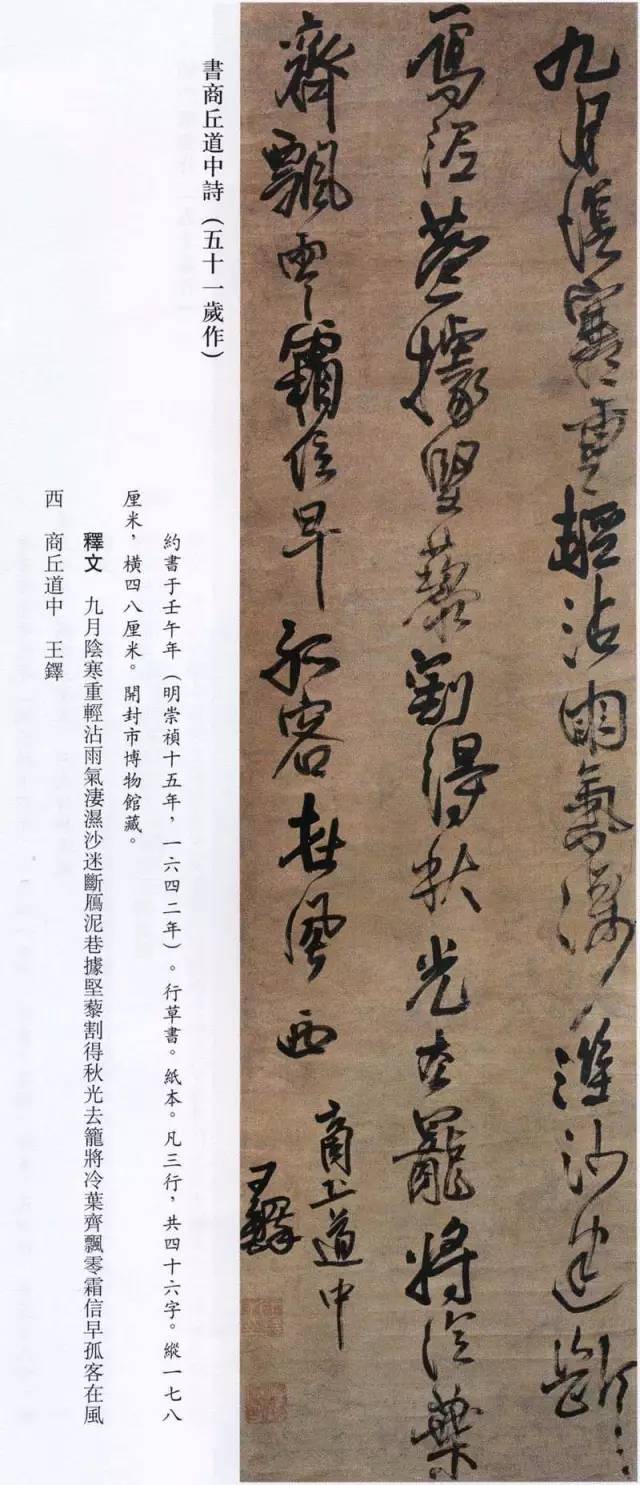 九月陰寒重輕沾雨氣淒濕沙迷斷
鴈泥巷據堅藜割得秋光去籠將冷葉
齊飄零霜信早孤客在風西
商丘道中
王鐸
書商丘道中詩（五十一歲作）
約書于壬午年（明崇禎十五年，一六四二年）。行草書。紙本。凡三行，共四十六字。縱一七八
厘米，橫四八厘米。開封市博物館藏。
釋文　九月陰寒重輕沾雨氣淒濕沙迷斷鴈泥巷據堅藜割得秋光去籠將冷葉齊飄零霜信早孤客在風
西　商丘道中　王鐸